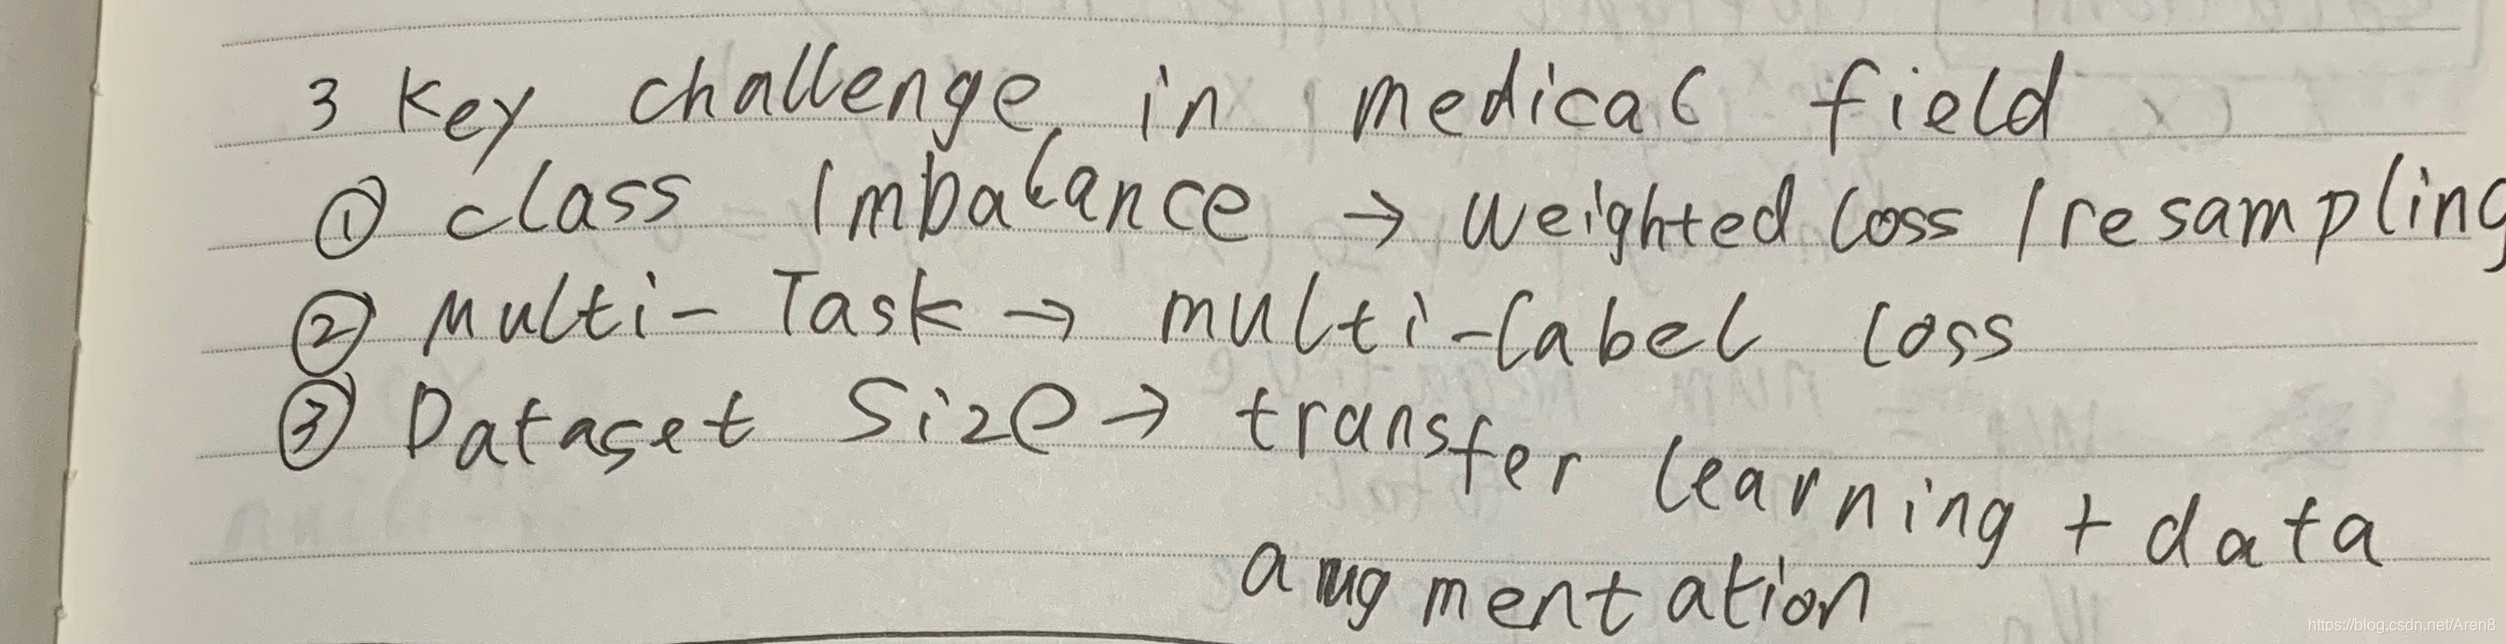 3 Key challenge in medical field
① class Imbalance → weighted loss / resampling
② Multi-Task → multi-label loss
③ Dataset Size → transfer learning + data
augmentation
https://blog.csdn.net/Aren8